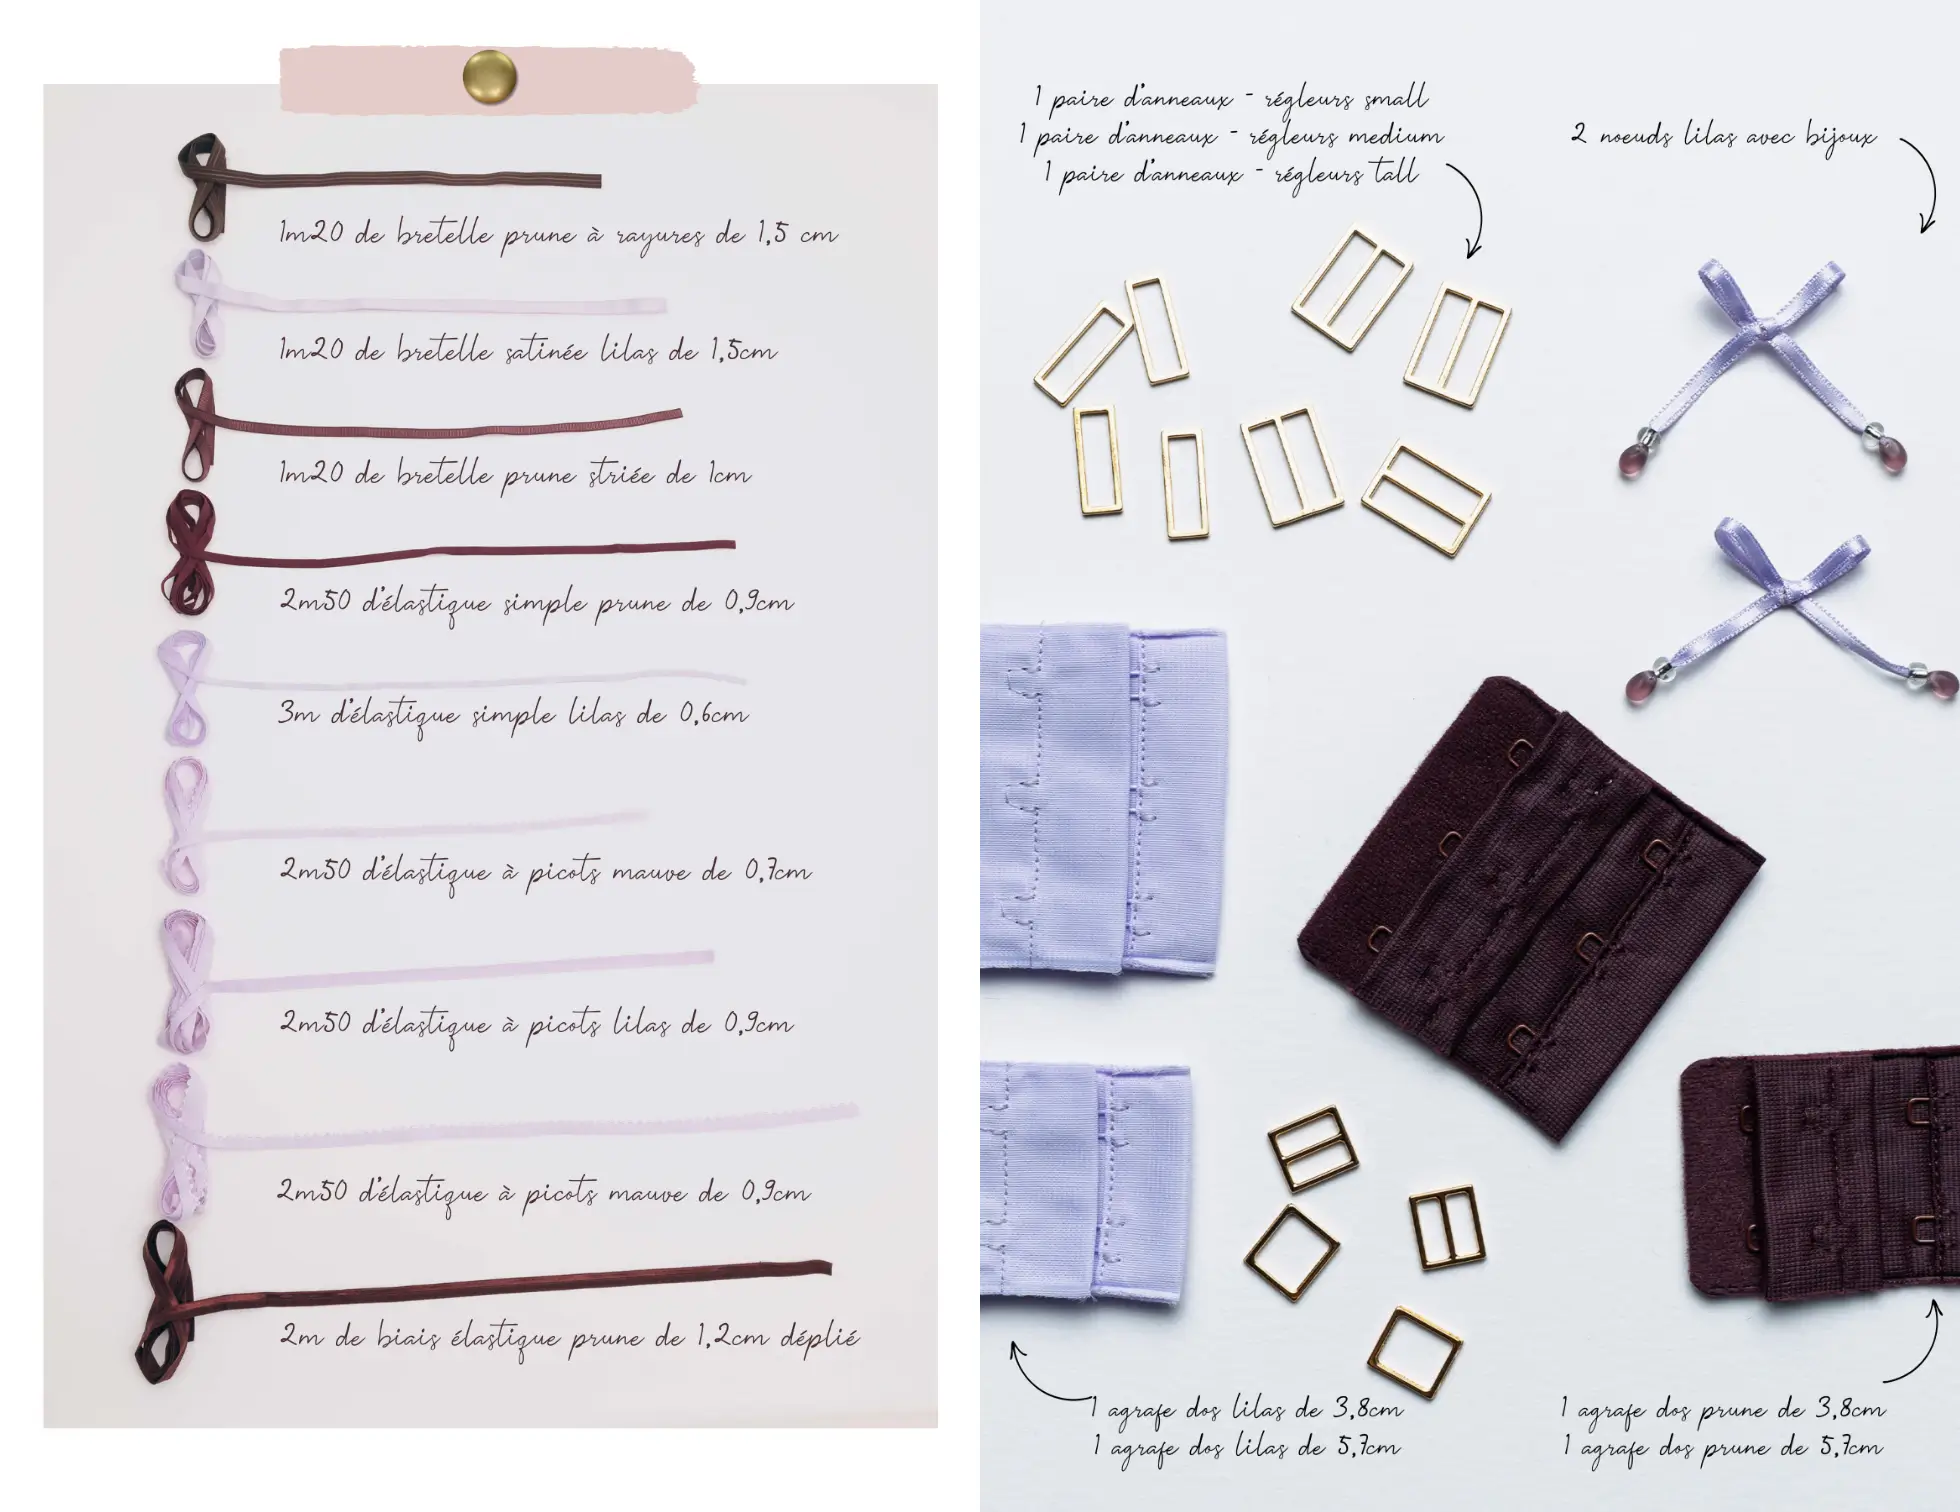 1m20 de bretelle prune à rayures de 1,5 cm
1m20 de bretelle satinée lilas de 1,5cm
1m20 de bretelle prune striée de 1cm
2m50 d'élastique simple prune de 0,9cm
3m d'élastique simple lilas de 0,6cm
2m50 d'élastique à picots mauve de 0,7cm
2m50 d'élastique à picots lilas de 0,9cm
2m50 d'élastique à picots mauve de 0,9cm
2m de biais élastique prune de 1,2cm déplié
1 paire d'anneaux - régleurs small
1 paire d'anneaux - régleurs medium
1 paire d'anneaux - régleurs tall
2 noeuds lilas avec bijoux
1 agrafe dos lilas de 3,8cm
1 agrafe dos lilas de 5,7cm
1 agrafe dos prune de 3,8cm
1 agrafe dos prune de 5,7cm